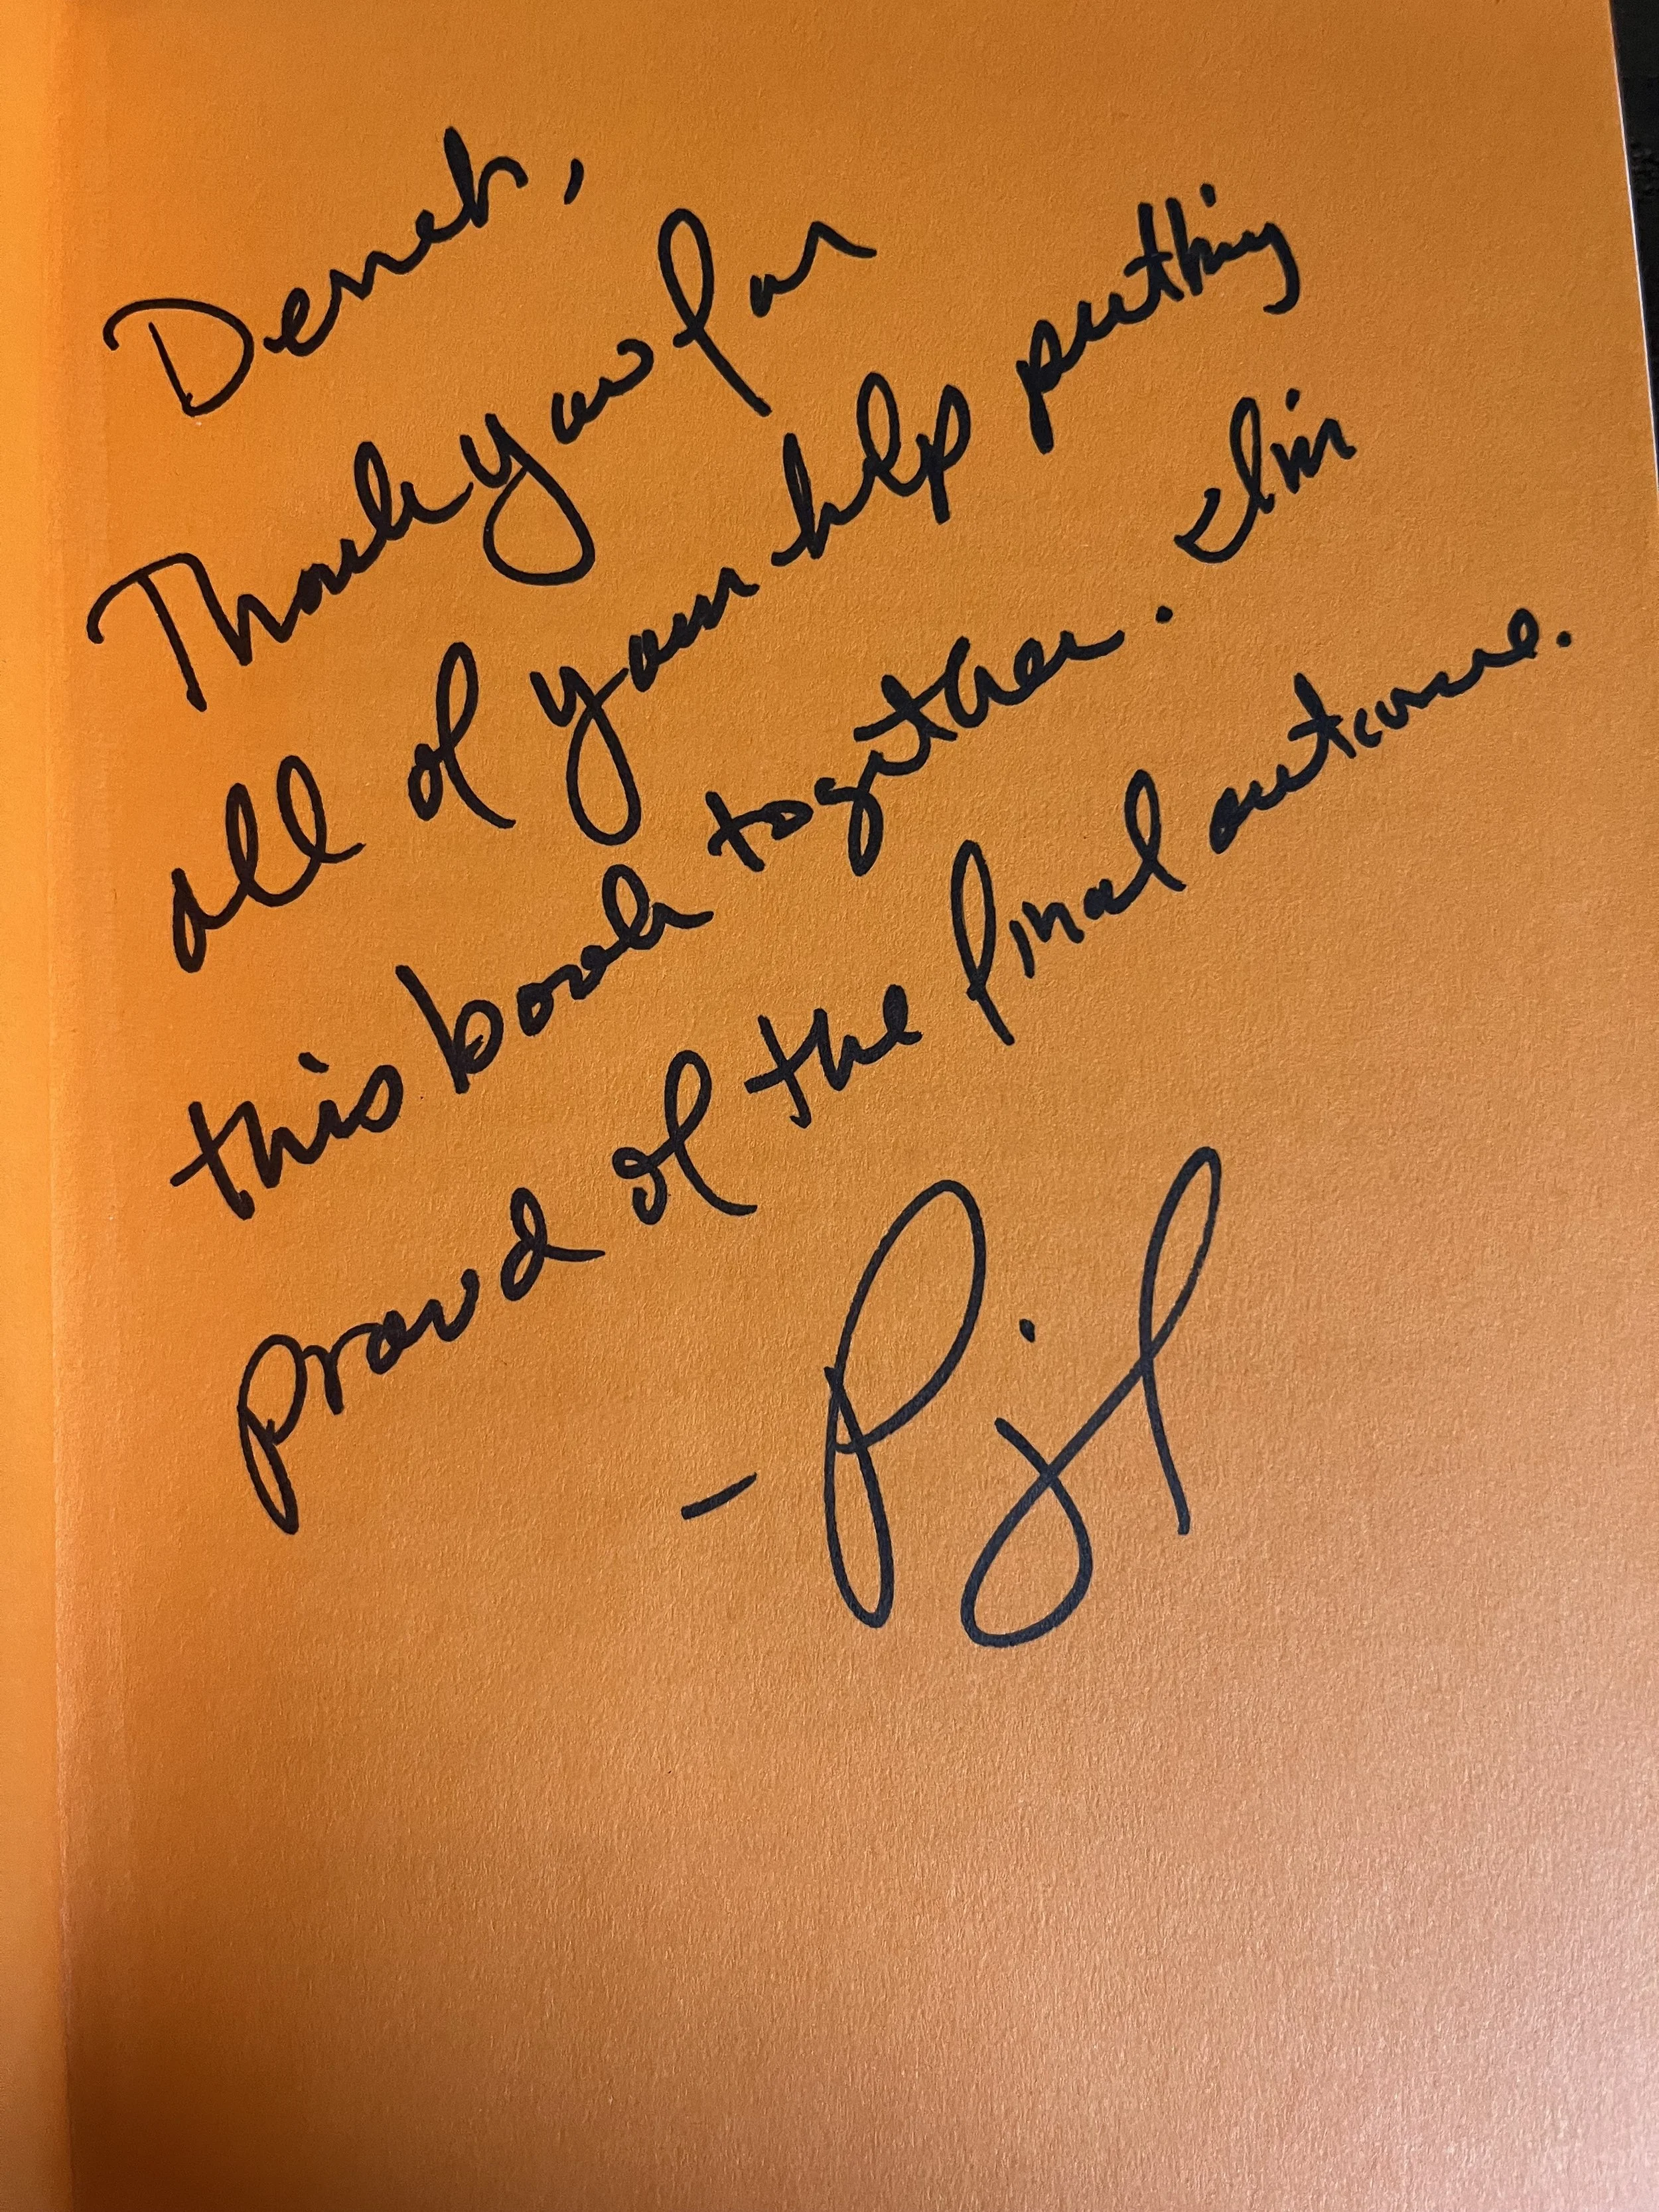 Derek,
Thank you for
all of your help putting
this book together. I'm
proud of the final outcome.